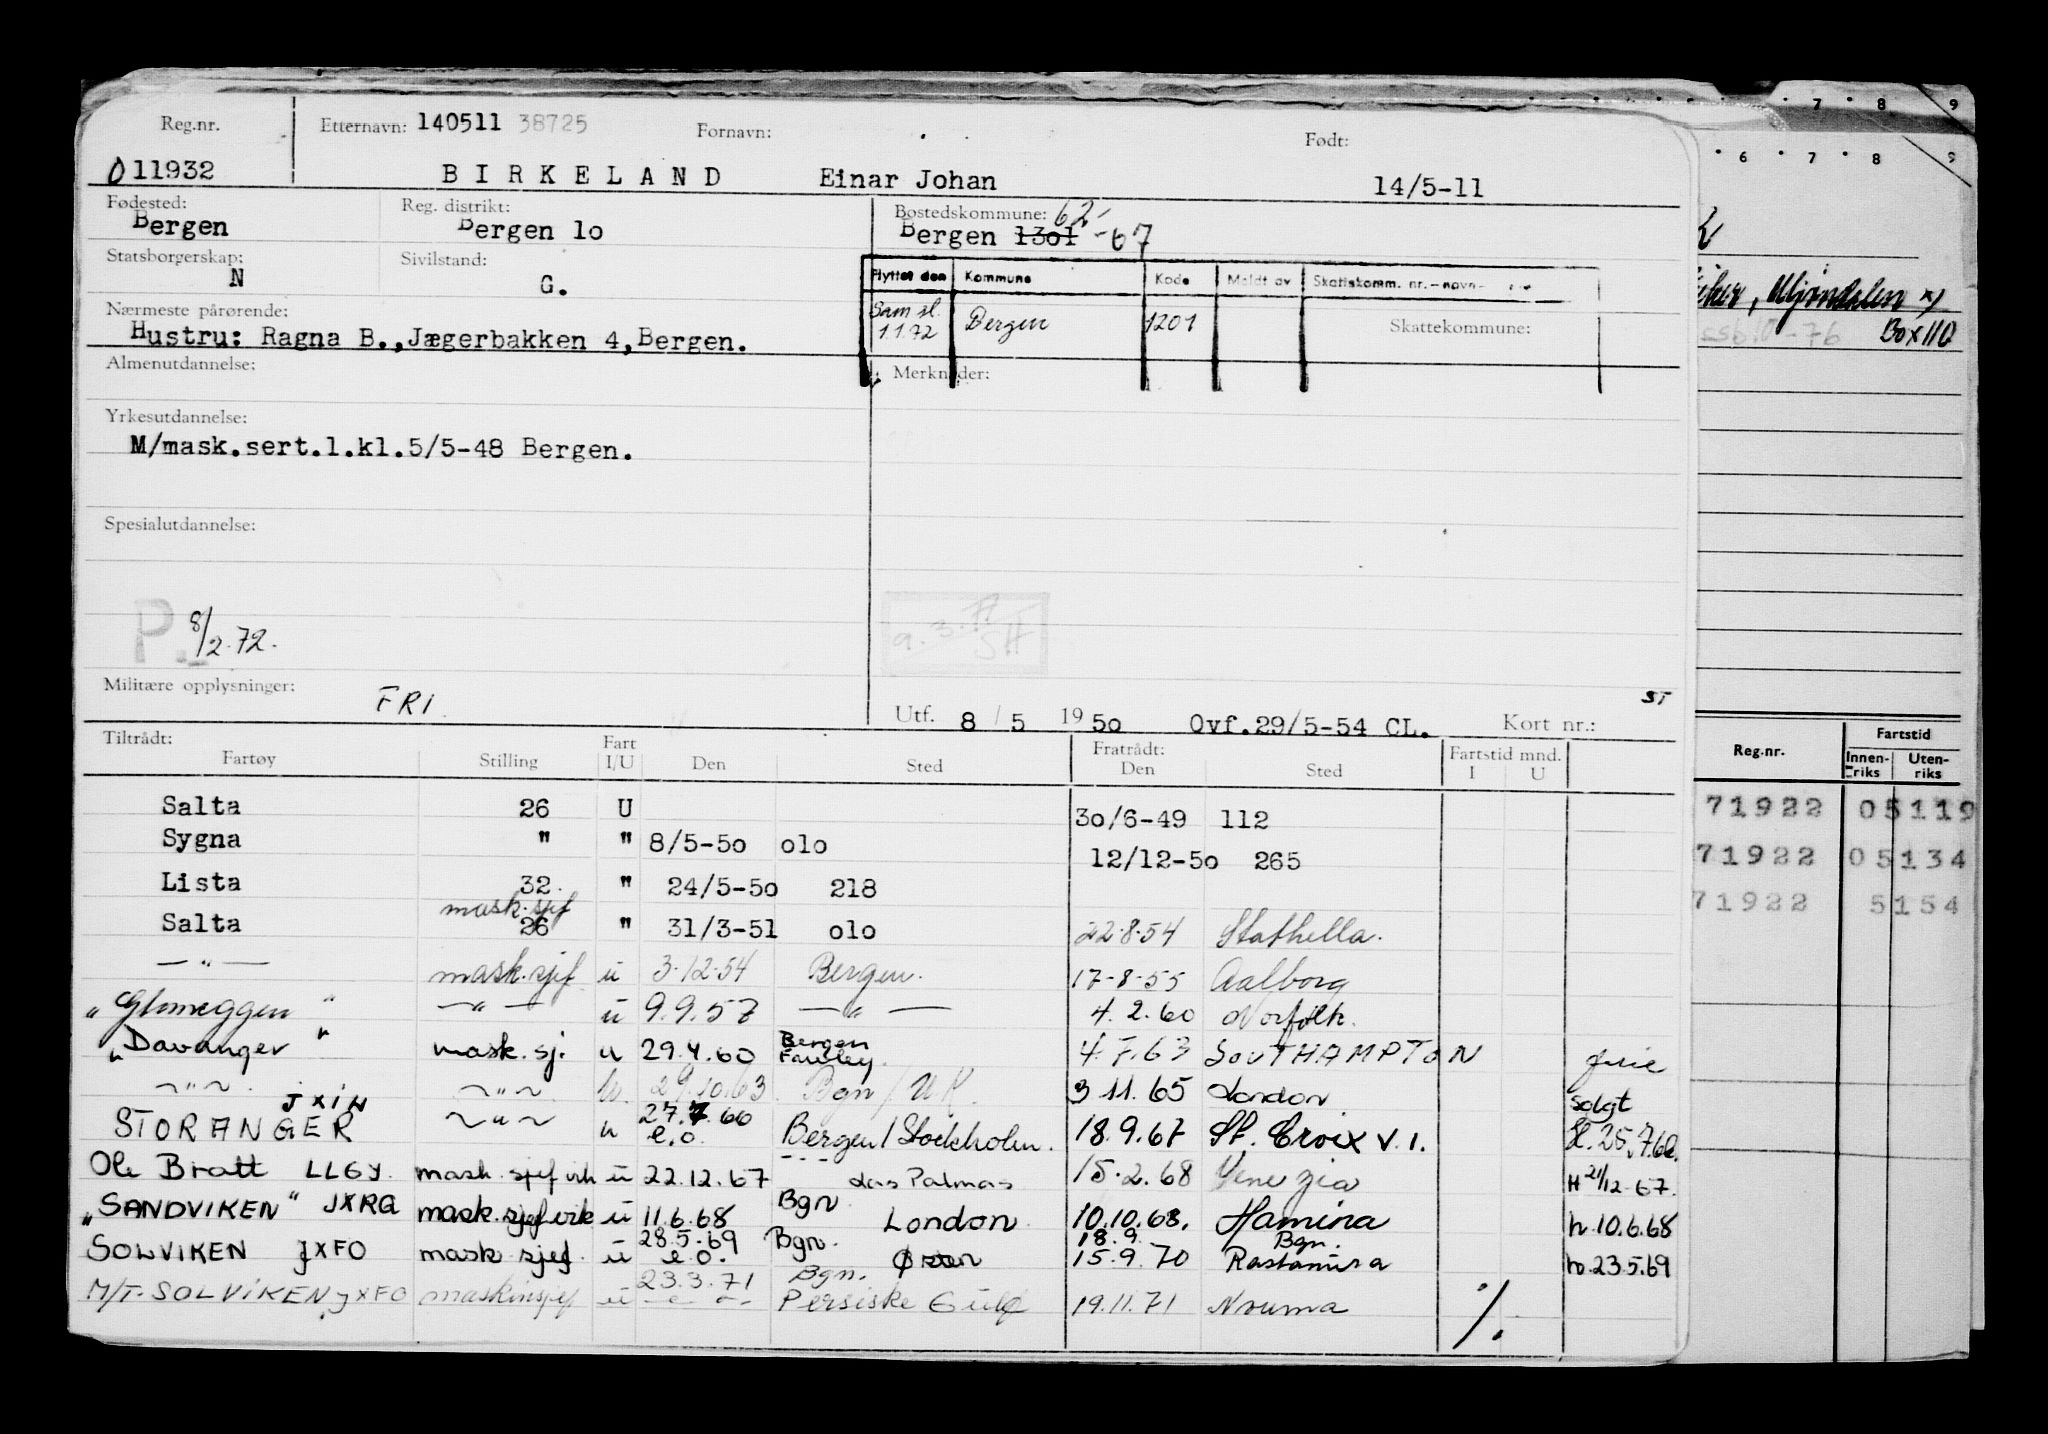 7 8 9
Reg.nr. Etternavn: 140511 38725 Fornavn: Født:
6 7 8 9
011932 BIRKELAND Einar Johan 14/5-11
Fødested: Reg. distrikt: Bostedskommune: 62-
Bergen Bergen 10 Bergen 1301 -67
Statsborgerskap: Sivilstand:
N G.
Flyttet den Kommune Kode Meldt av Skattekomm. nr.-navn-
Sam sl. 1.1.72 Bergen 1201
Nærmeste pårørende: Skattekommune:
Hustru: Ragna B.,Jægerbakken 4,Bergen.
Mjøndalen x)
Box 110
Almenutdannelse: Merknader:
Yrkesutdannelse:
M/mask.sert.1.kl.5/5-48 Bergen.
Spesialutdannelse:
P. 8/2.72.
9.3.77 SH
Militære opplysninger: FRI ST
Utf. 8/5 1950 Ovf.29/5-54 CL. Kort nr.:
Tiltrådt: Fratrådt:
Fartøy Stilling Fart I/U Den Sted Den Sted Fartstid mnd. I U
Reg.nr. Fartstid Innen-riks Uten-riks
Salta 26 U 30/6-49 112
71922 05119
Sygna " " 8/5-50 olo 12/12-50 265
71922 05134
Lista 32. " 24/5-50 218
71922 5154
mask.sjef
Salta 26 " 31/3-51 olo 22.8.54 Stathella.
— " — mask.sjef u 3.12.54 Bergen. 17-8-55 Aalborg
"Glomeggen" — " — u 9.9.57 — " — 4.2.60 Norfolk.
"Davanger" mask.sj. u 29.4.60 Bergen Fawley. 4.7.63 SOUTHAMPTON ferie
~ " ~ ~ " ~ u. 29.10.63 Bgn/UK. 3.11.65 London solgt
STORANGER JXIN ~ " ~ u 27.7.66 e.o. Bergen/Stockholm. 18.9.67 St. Croix V.I. H.25.7.66.
Ole Bratt LLGJ. mask.sjef vik u 22.12.67 Las Palmas 15.2.68 Venezia H 21/12-67.
"SANDVIKEN" JXRG mask.sjef vik u 11.6.68 Bgn London 10.10.68. Hamina h.10.6.68
SOLVIKEN JXFO mask sjef. u 28.5.69 e.o. Bgn. Østen 18.9. 15.9.70 Bgn. Rastanura h.23.5.69
M/T. SOLVIKEN JXFO maskinsjef u 23.3.71 - e - o - Bgn. Persiske Gulf 19.11.71 Nouma %.